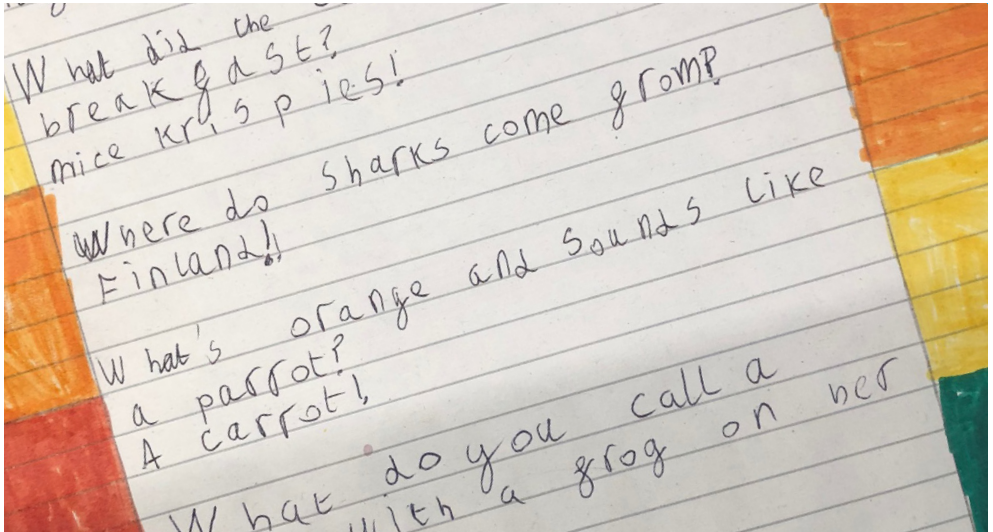 What did the
breakfast?
mice krispies!
Where do sharks come from?
Finland!!
What's orange and sounds like
a parrot?
A carrot!
What do you call a
with a frog on her